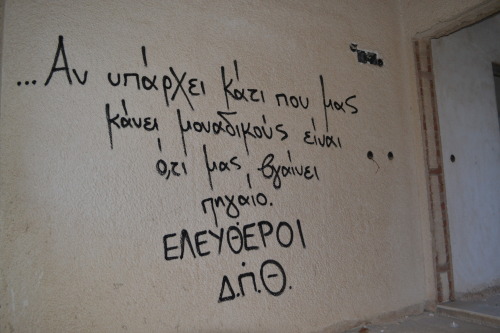 ...Αν υπάρχει κάτι που μας
κάνει μοναδικούς είναι
ό,τι μας βγαίνει
πηγαίο.
ΕΛΕΥΘΕΡΟΙ
Δ.Π.Θ.